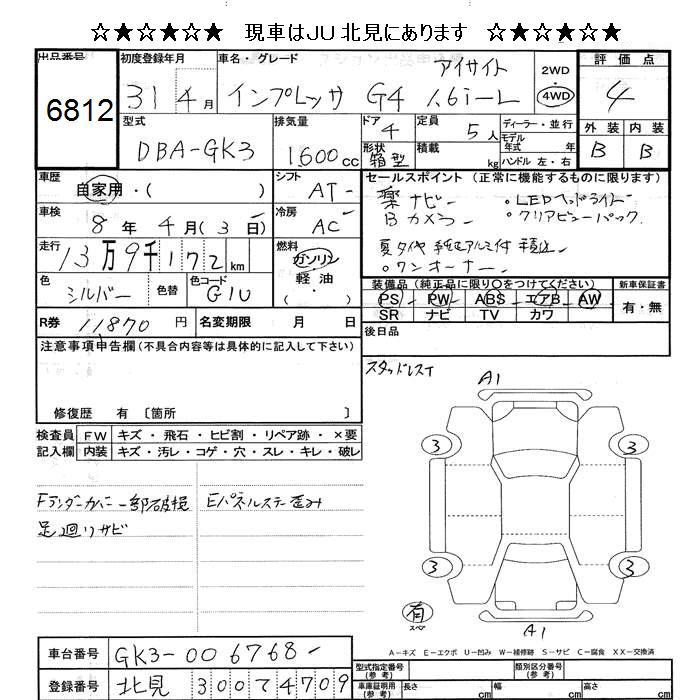 ☆★☆★☆★ 現車はJU北見にあります ☆★☆★☆★
出品番号 6812
初度登録年月 31年 4月
車名・グレード インプレッサ G4 1.6i-L アイサイト
2WD 4WD
評価点 4
外装 B 内装 B
型式 DBA-GK3
排気量 1600cc
ドア 4
形状 箱型
定員 5人
積載 kg
ディーラー・並行
モデル年式 年
ハンドル 左・右
車歴 自家用・( )
シフト AT
車検 8年 4月( 3日)
冷房 AC
走行 13万9千172km
燃料 ガソリン 軽油
色 シルバー 色替 色コード G1U
R券 11870円 名変期限 月 日
セールスポイント(正常に機能するものに限ります)
楽ナビ 。LEDヘッドライト
Bカメラ 。クリアビューパック
夏タイヤ 純正アルミ付 積込
。ワンオーナー
装備品(純正品に限り〇をつけてください) 新車保証書
PS PW ABS エアB AW 有・無
SR ナビ TV カワ
後日品
スタッドレス
注意事項申告欄(不具合内容等は具体的に記入して下さい)
修復歴 有〔箇所 〕
検査員 FW キズ・飛石・ヒビ割・リペア跡・×要
記入欄 内装 キズ・汚レ・コゲ・穴・スレ・キレ・破レ
Fアンダーカバー一部破損 Eパネルステー歪み
足廻りサビ
A1
3 3
3 3
有 スペア
A1
A－キズ E－エクボ U－凹み W－補修跡 S－サビ C－腐食 XX－交換済
車台番号 GK3-006768
登録番号 北見 300 て 4709
型式指定番号(参考) 類別区分番号(参考)
車庫証明用(参考) 長さ cm 幅 cm 高さ cm